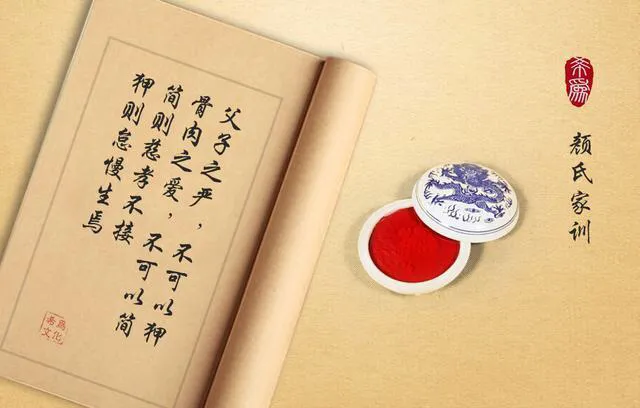 父子之严,不可以狎
骨肉之爱,不可以简
简则慈孝不接
狎则怠慢生焉
希為
文化
希為
颜氏家训